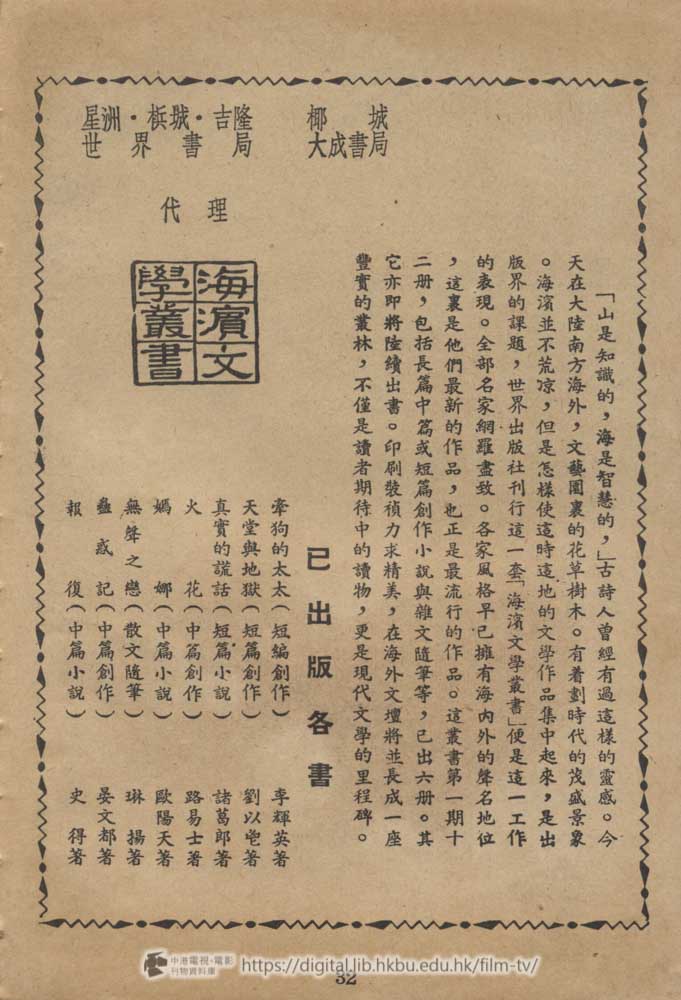 星洲・梹城・吉隆
世界書局
椰城
大成書局
代理
海濱文
學叢書
「山是知識的,海是智慧的,」古詩人曾經有過這樣的靈感。今
天在大陸南方海外,文藝園裏的花草樹木。有着劃時代的茂盛景象
。海濱並不荒凉,但是怎樣使這時這地的文學作品集中起來,是出
版界的課題,世界出版社刊行這一套「海濱文學叢書」便是這一工作
的表現。全部名家網羅盡致。各家風格早已擁有海內外的聲名地位
,這裏是他們最新的作品,也正是最流行的作品。這叢書第一期十
二册,包括長篇中篇或短篇創作小說與雜文隨筆等,已出六册。其
它亦即將陸續出書。印刷裝禎力求精美,在海外文壇將並長成一座
豐實的叢林,不僅是讀者期待中的讀物,更是現代文學的里程碑。
已出版各書
牽狗的太太(短編創作) 李輝英著
天堂與地獄(短篇創作) 劉以鬯著
真實的謊話(短篇小說) 諸葛郎著
火花(中篇創作) 路易士著
嫣娜(中篇小說) 歐陽天著
無聲之戀(散文隨筆) 琳揚著
蠱惑記(中篇創作) 晏文都著
報復(中篇小說) 史得著
32
中港電視・電影
刊物資料庫
https://digital.lib.hkbu.edu.hk/film-tv/